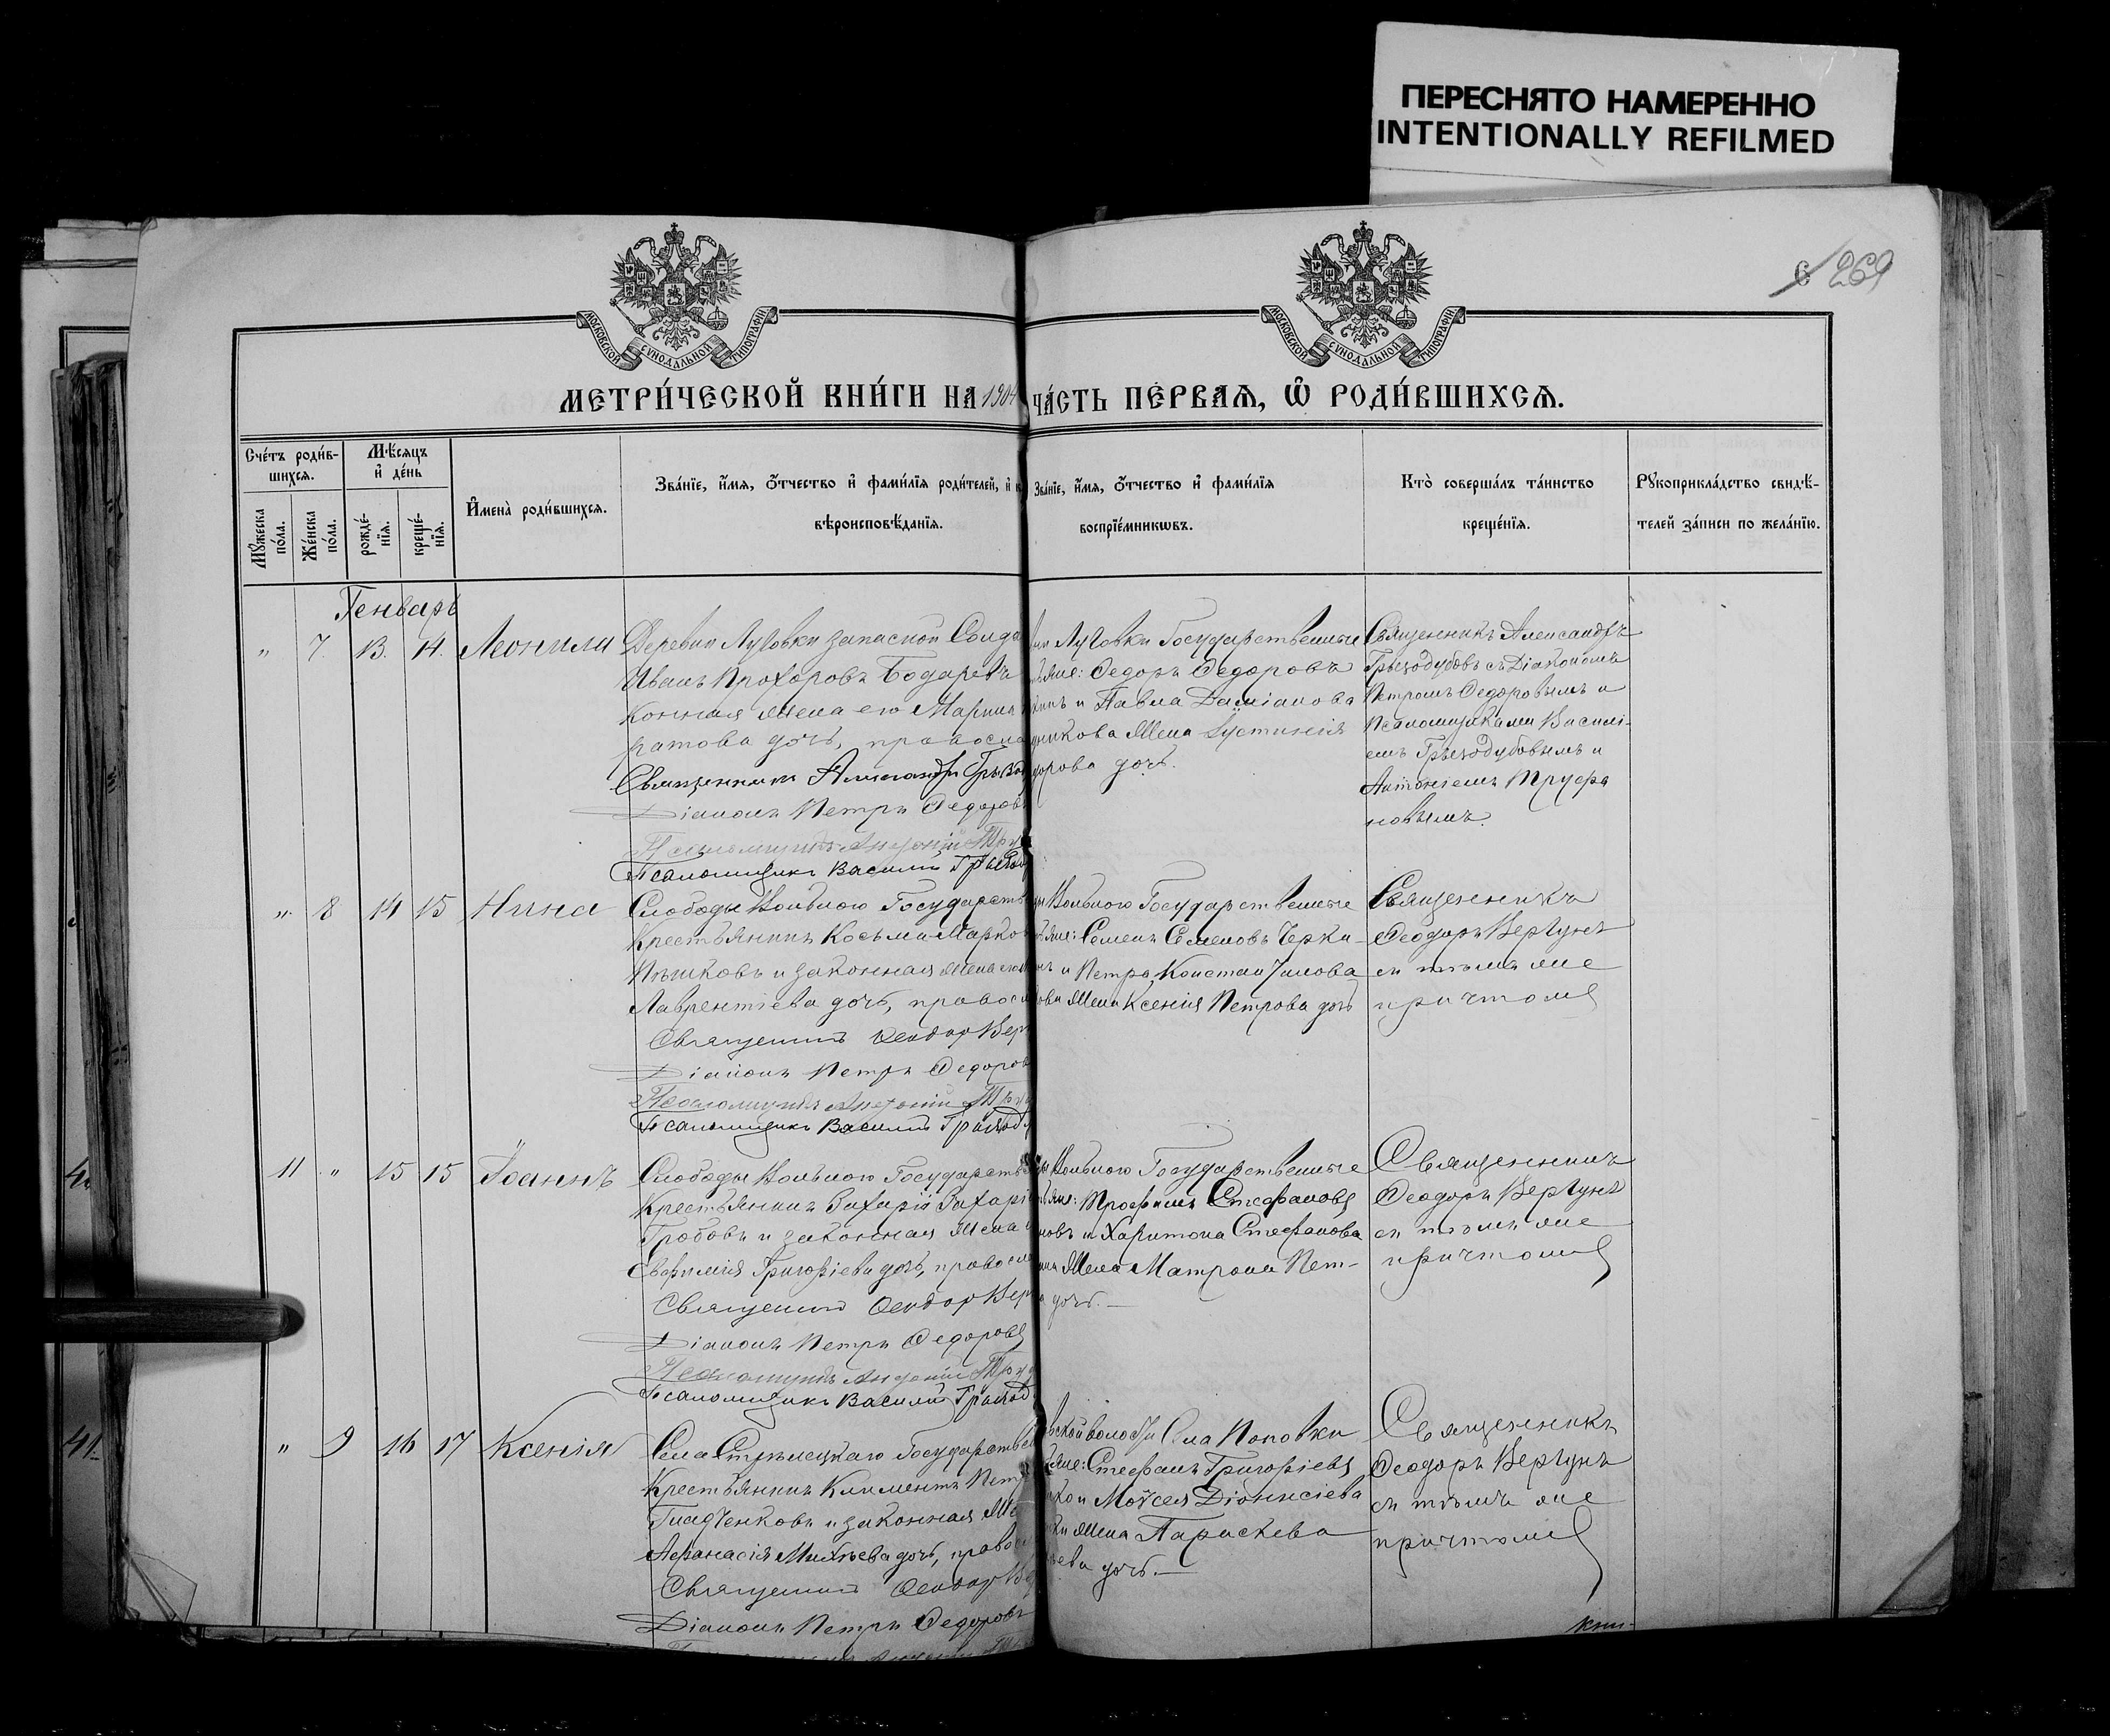 ПЕРЕСНЯТО НАМЕРЕННО
INTENTIONALLY REFILMED
6 269
МОСКОВСКОЙ СѴНОДАЛЬНОЙ ТИПОГРАФІИ
МОСКОВСКОЙ СѴНОДАЛЬНОЙ ТИПОГРАФІИ
МЕТРИ́ЧЕСКОЙ КНИ́ГИ НА 1904
ЧА́СТЬ ПЕ́РВАѦ, Ѡ҆ РОДИ́ВШИХСѦ.
Сче́тъ роди́в-
шихсѧ.
Мꙋ́жеска
по́ла.
Же́нска
по́ла.
Мѣ́сѧцъ
и҆ де́нь
рожде́-
нїѧ.
креще́-
нїѧ.
И҆мена̀ роди́вшихсѧ.
Зва́нїе, и҆́мѧ, ѻ҆́тчество и҆ фами́лїѧ роди́телей, и҆
вѣроисповѣ́данїѧ.
Зва́нїе, и҆́мѧ, ѻ҆́тчество и҆ фами́лїѧ
воспрїе́мникѡвъ.
Кто̀ соверша́лъ та́инство
креще́нїѧ.
Рꙋкоприкла́дство свидѣ́-
телей за́писи по жела́нїю.
Генварь
" 7. 13. 14. Леонила
Деревни Луговки запасной Солда
Иванъ Прохоровъ
конная жена его Марина
ратова дочь, правосла
Священникъ Александръ Грызод
Діаконъ Петръ Федоровъ
Псаломщикъ Антоній Тру
Псаломщикъ Василій Грызод
ни Луговки Государственные
яне: Федоръ Федоровъ
и Павла Даміанова
никова жена Іустинія
дорова дочь.
Священникъ Александръ
Грызодубовъ съ Діакономъ
Петромъ Федоровымъ и
Псаломщиками Василі-
емъ Грызодубовымъ и
Антоніемъ Труфа
новымъ.
" 8 14 15 Нина
Слободы Вольного Государств
Крестьянинъ Косьма Марков
Пѣшковъ и законная жена
Лаврентіева дочь, правосл
Священникъ Феодор Вер
Діаконъ Петръ Федоров
Псаломщикъ Антоній Тру
Псаломщикъ Василій Грызод
Вольного Государственные
яне: Семенъ Семеновъ Черка-
и Петра Константинова
жена Ксенія Петрова дочь
Священникъ
Феодоръ Вергунъ
съ тѣмъ же
причтомъ
11 " 15 15 Іоаннъ
Слободы Вольного Государств
Крестьянинъ Захарій Захарі
Гробовъ и законная жена
Евфимія Григоріева дочь, правосла
Священникъ Феодор Вер
Діаконъ Петръ Федоровъ
Псаломщикъ Антоній Тру
Псаломщикъ Василій Грызод
Вольного Государственные
яне: Трофимъ Стефановъ
новъ и Харитона Стефанова
жена Матрона Пет-
дочь.
Священникъ
Феодоръ Вергунъ
съ тѣмъ же
причтомъ
" 9 16 17 Ксенія
Села Стрѣлецкаго Государств
Крестьянинъ Климентъ Петр
Гладченковъ и законная
Афанасія Михѣева дочь, право
Священникъ Феодор
Діаконъ Петръ Федоровъ
ской волости Села Поповки
яне: Стефанъ Григоріевъ
ко и Моѵсея Діонисіева
жена Параскева
ева дочь.
Священникъ
Феодоръ Вергунъ
съ тѣмъ же
причтомъ
кни-
41.